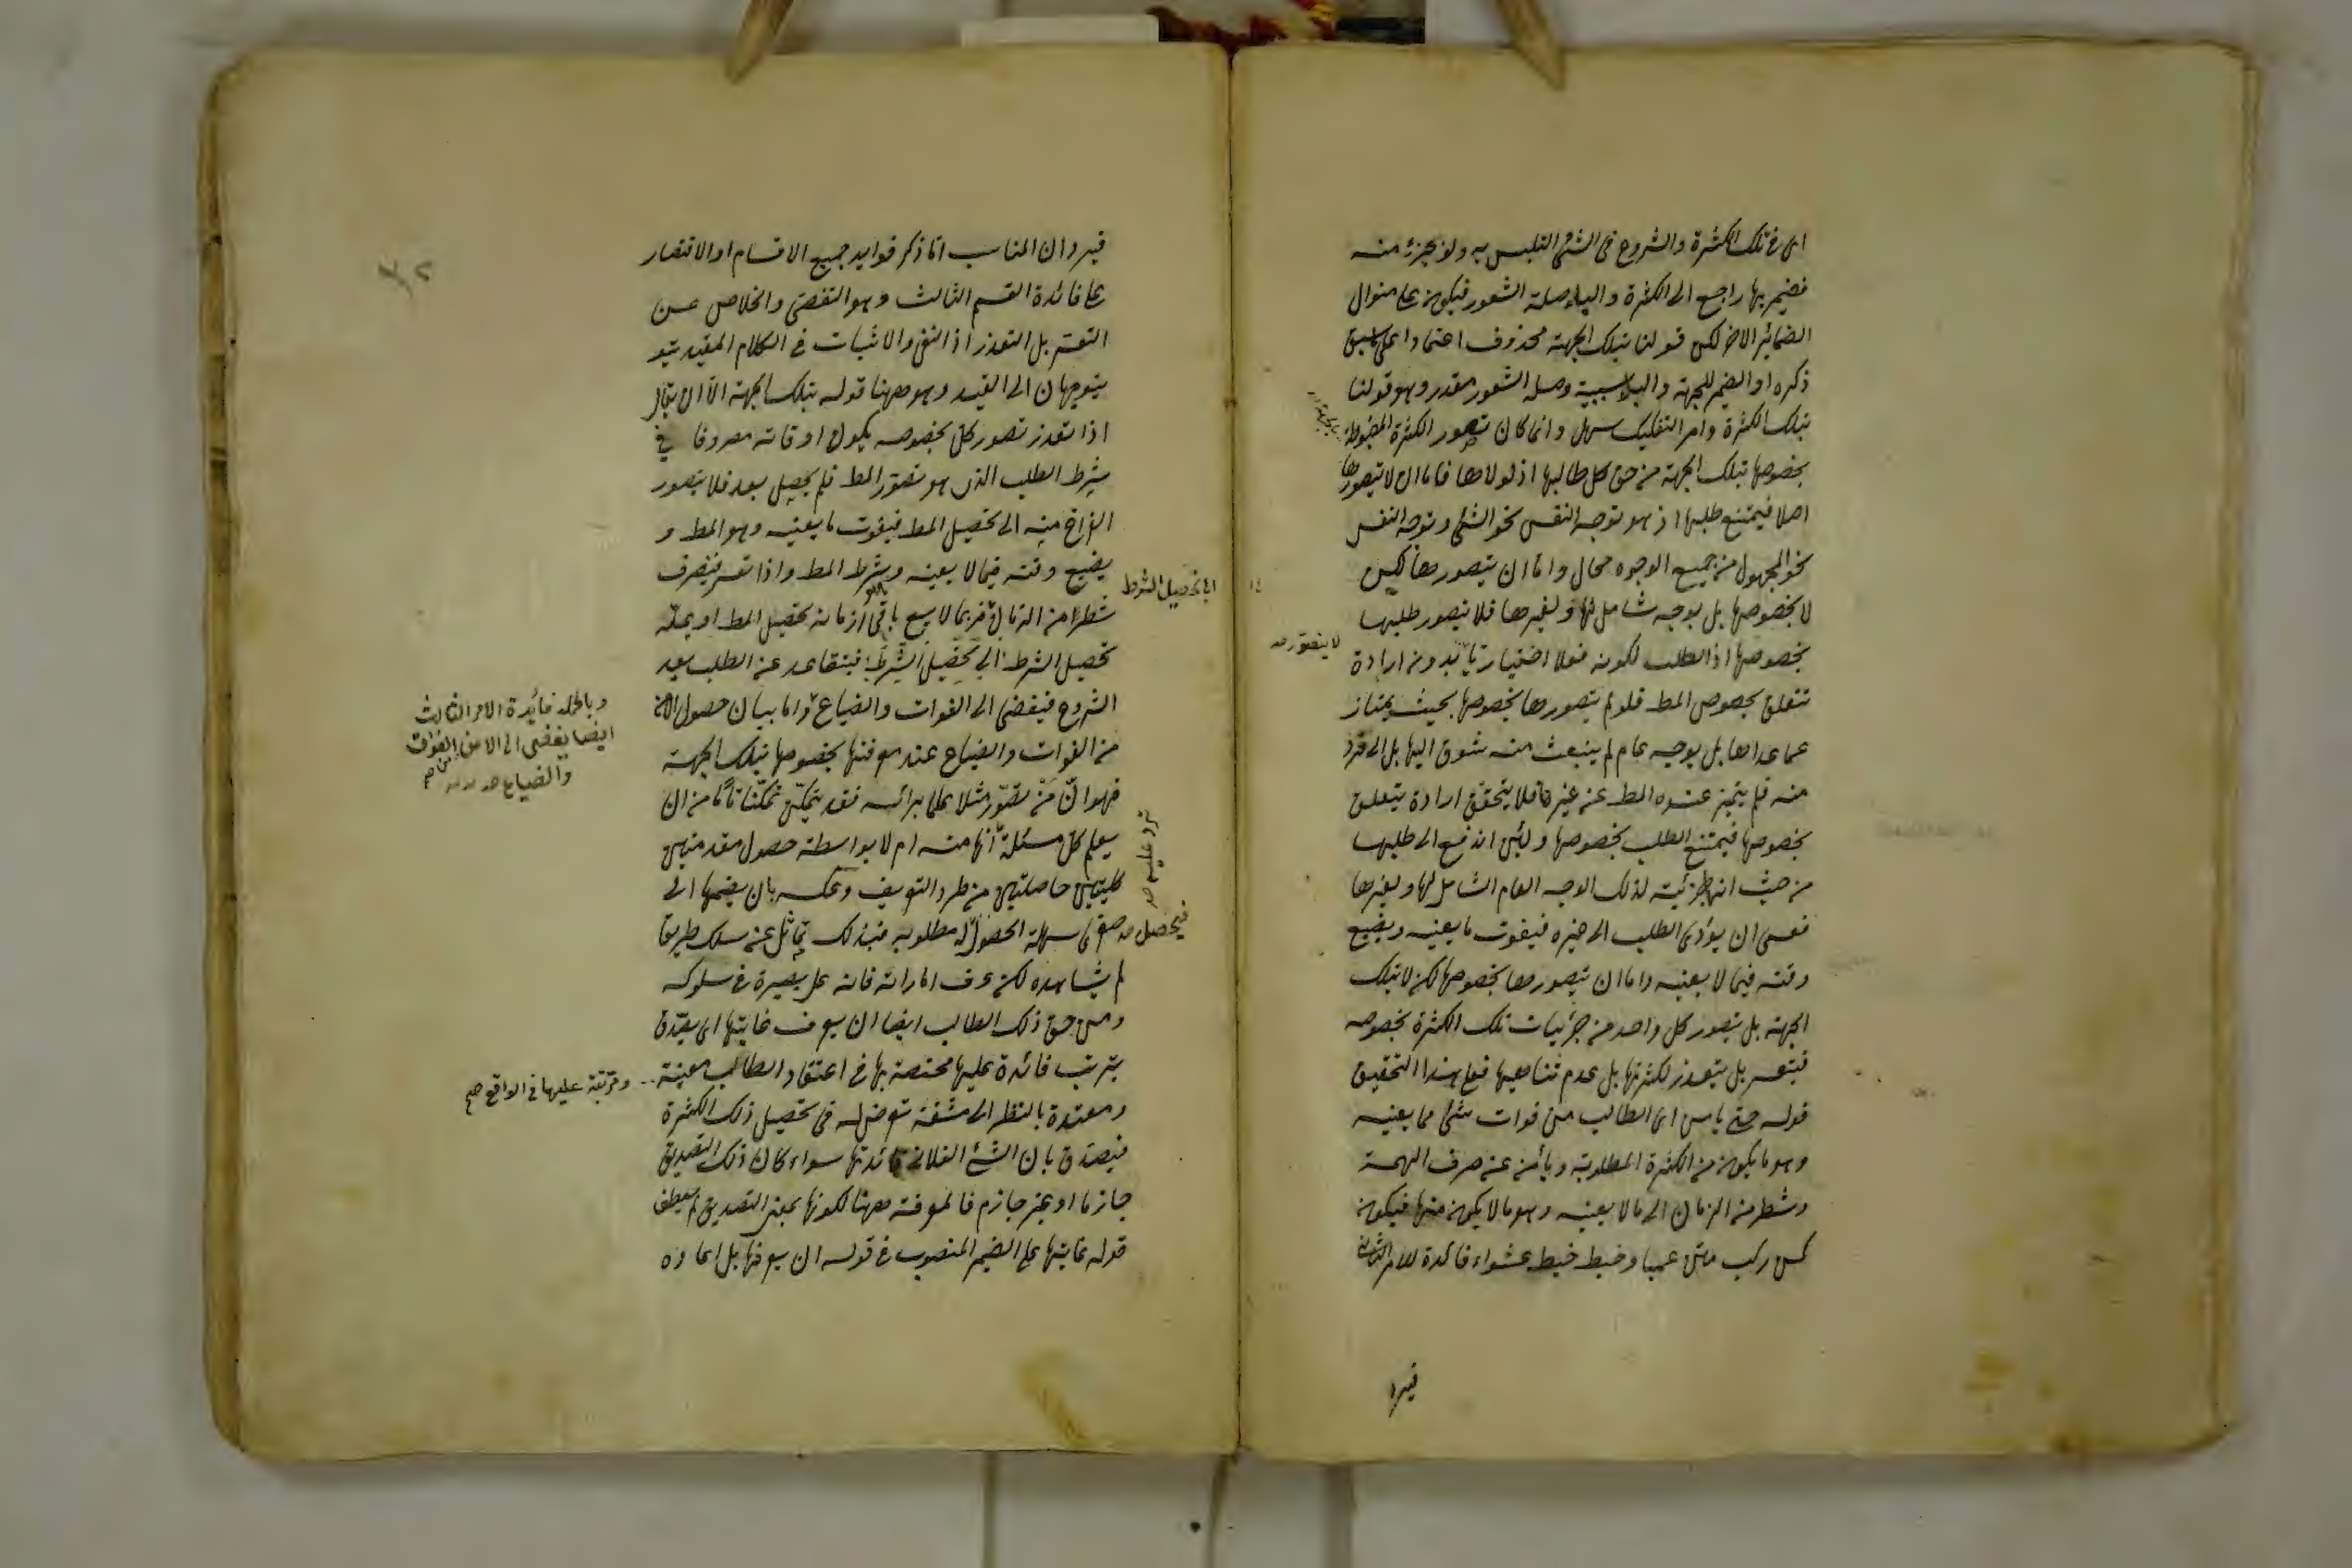 اى فى تلك الكثرة والشروع فى الشئ التلبس به ولو بجزء منه
فضمير بها راجع الى الكثرة والباء صلة الشعور فيكون على منوال
الضمائر الاخر لكن قولنا بتلك الجهة محذوف اعتمادا على سبق
ذكره او الضمير للجهة والباء سببية وصلة الشعور مقدر وهو قولنا
بتلك الكثرة وامر التفكيك سهل وانما كان تصور الكثرة المضبوطة
بخصوصها بتلك الجهة من حق كل طالبها اذ لولاها فاما ان لا يتصورها
اصلا فيمتنع طلبها اذ هو توجه النفس نحو الشئ وتوجه النفس
نحو المجهول من جميع الوجوه محال واما ان يتصورها لكن
لا بخصوصها بل بوجه شامل لها ولغيرها فلا يتصور طلبها
لا يتصور صح
بخصوصها اذ الطلب لكونه فعلا اختياريا بدون ارادة
تتعلق بخصوص المط فلو لم يتصورها بخصوصها بحيث يمتاز
عما عداها بل بوجه عام لم ينبعث منه شوق اليها بل الى فرد
منه فلم يتميز عنده المط عن غيره فلا يتحقق ارادة يتعلق
بخصوصها فيمتنع الطلب بخصوصها ولئن اندفع الى طلبها
من حيث انها جزئية لذلك الوجه العام الشامل لها ولغيرها
فعسى ان يؤدى الطلب الى غيره فيفوت ما يعنيه ويضيع
وقته فيما لا يعنيه واما ان يتصورها بخصوصها لكن لا بتلك
الجهة بل يتصور كل واحد من جزئيات تلك الكثرة بخصوصه
فيتعسر بل يتعذر لكثرتها بل عدم تناهيها فعلى هذا التحقيق
قوله حتى يامن اى الطالب من فوات شئ مما يعنيه
وهو ما يكون من الكثرة المطلوبة ويأمن عن صرف الهمة
وشطر من الزمان الى ما لا يعنيه وهو ما لا يكون منها فيكون
كمن ركب متن عميا وخبط خبط عشواء فائدة للامر الثانى
فيرد
فيرد ان المناسب اما ذكر فوايد جميع الاقسام او الاقتصار
على فائدة القسم الثالث وهو التفصى والخلاص عن
التعسر بل التعذر اذ النفى والاثبات فى الكلام المقيد بقيد
يتوجهان الى القيد وهو ههنا قوله بتلك الجهة الا ان يقال
اذا تعذر تصور كل بخصوصه يكون اوقاته مصروفا فى
شرط الطلب الذى هو تصور المط فلم يحصل بعد فلا يتصور
الفراغ منه الى تحصيل المط فيفوت ما يعنيه وهو المط و
يضيع وقته فيما لا يعنيه وشرط المط واذا تعسر فيصرف
اى تحصيل الشرط
شطرا من الزمان فربما لا يسع باقى ازمانه تحصيل المط او يمله
تحصيل الشرط الى تحصيل الشرط فيتقاعد عن الطلب بعد
الشروع فيفضى الى الفوات والضياع واما بيان حصول الامن
وبالجملة فائدة الامر الثالث
ايضا يفضى الى الامن من الفوات
والضياع صح
من الفوات والضياع عند معرفتها بخصوصها بتلك الجهة
فهو ان من تصور مثلا علما براسه فقد يتمكن تمكنا تاما من ان
يعلم كل مسئلة انها منه ام لا بواسطة حصول مقدمتين
كليتين حاصلتين من طرد التعريف وعكسه بان يضمها الى
صغرى سهلة الحصول مطلوبه فبذلك تماثل عن سلك طريقا
فيحصل
لم يشاهده لكن عرف اماراته فانه على بصيرة فى سلوكه
ومن حق ذلك الطالب ايضا ان يعرف غايتها اى يصدق
بترتب فائدة عليها مختصة بها فى اعتقاد الطالب معينة
ومترتبة عليها فى الواقع صح
ومعتدة بالنظر الى مشقة تعرض له فى تحصيل ذلك الكثرة
فيصدق بان الشئ الفلانى فائدتها سواء كان ذلك التصديق
جازما او غير جازم فالمعرفة ههنا لكونها بمعنى التصديق لم يعطف
قوله غايتها على الضمير المنصوب فى قوله ان يعرفها بل اعاده